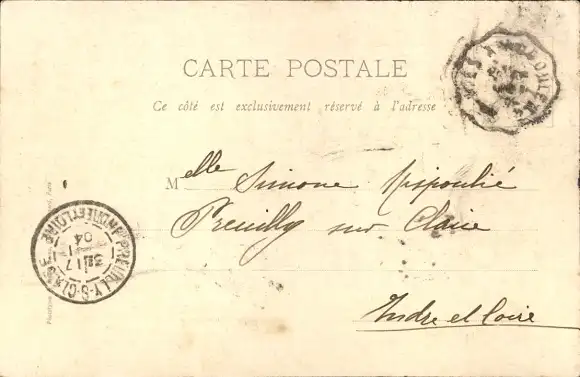 CARTE POSTALE
Ce côté est exclusivement réservé à l'adresse
Melle Simone
Preuilly sur Claise
Indre et Loire
PREUILLY-S-CLAISE
INDRE ET LOIRE
17
04